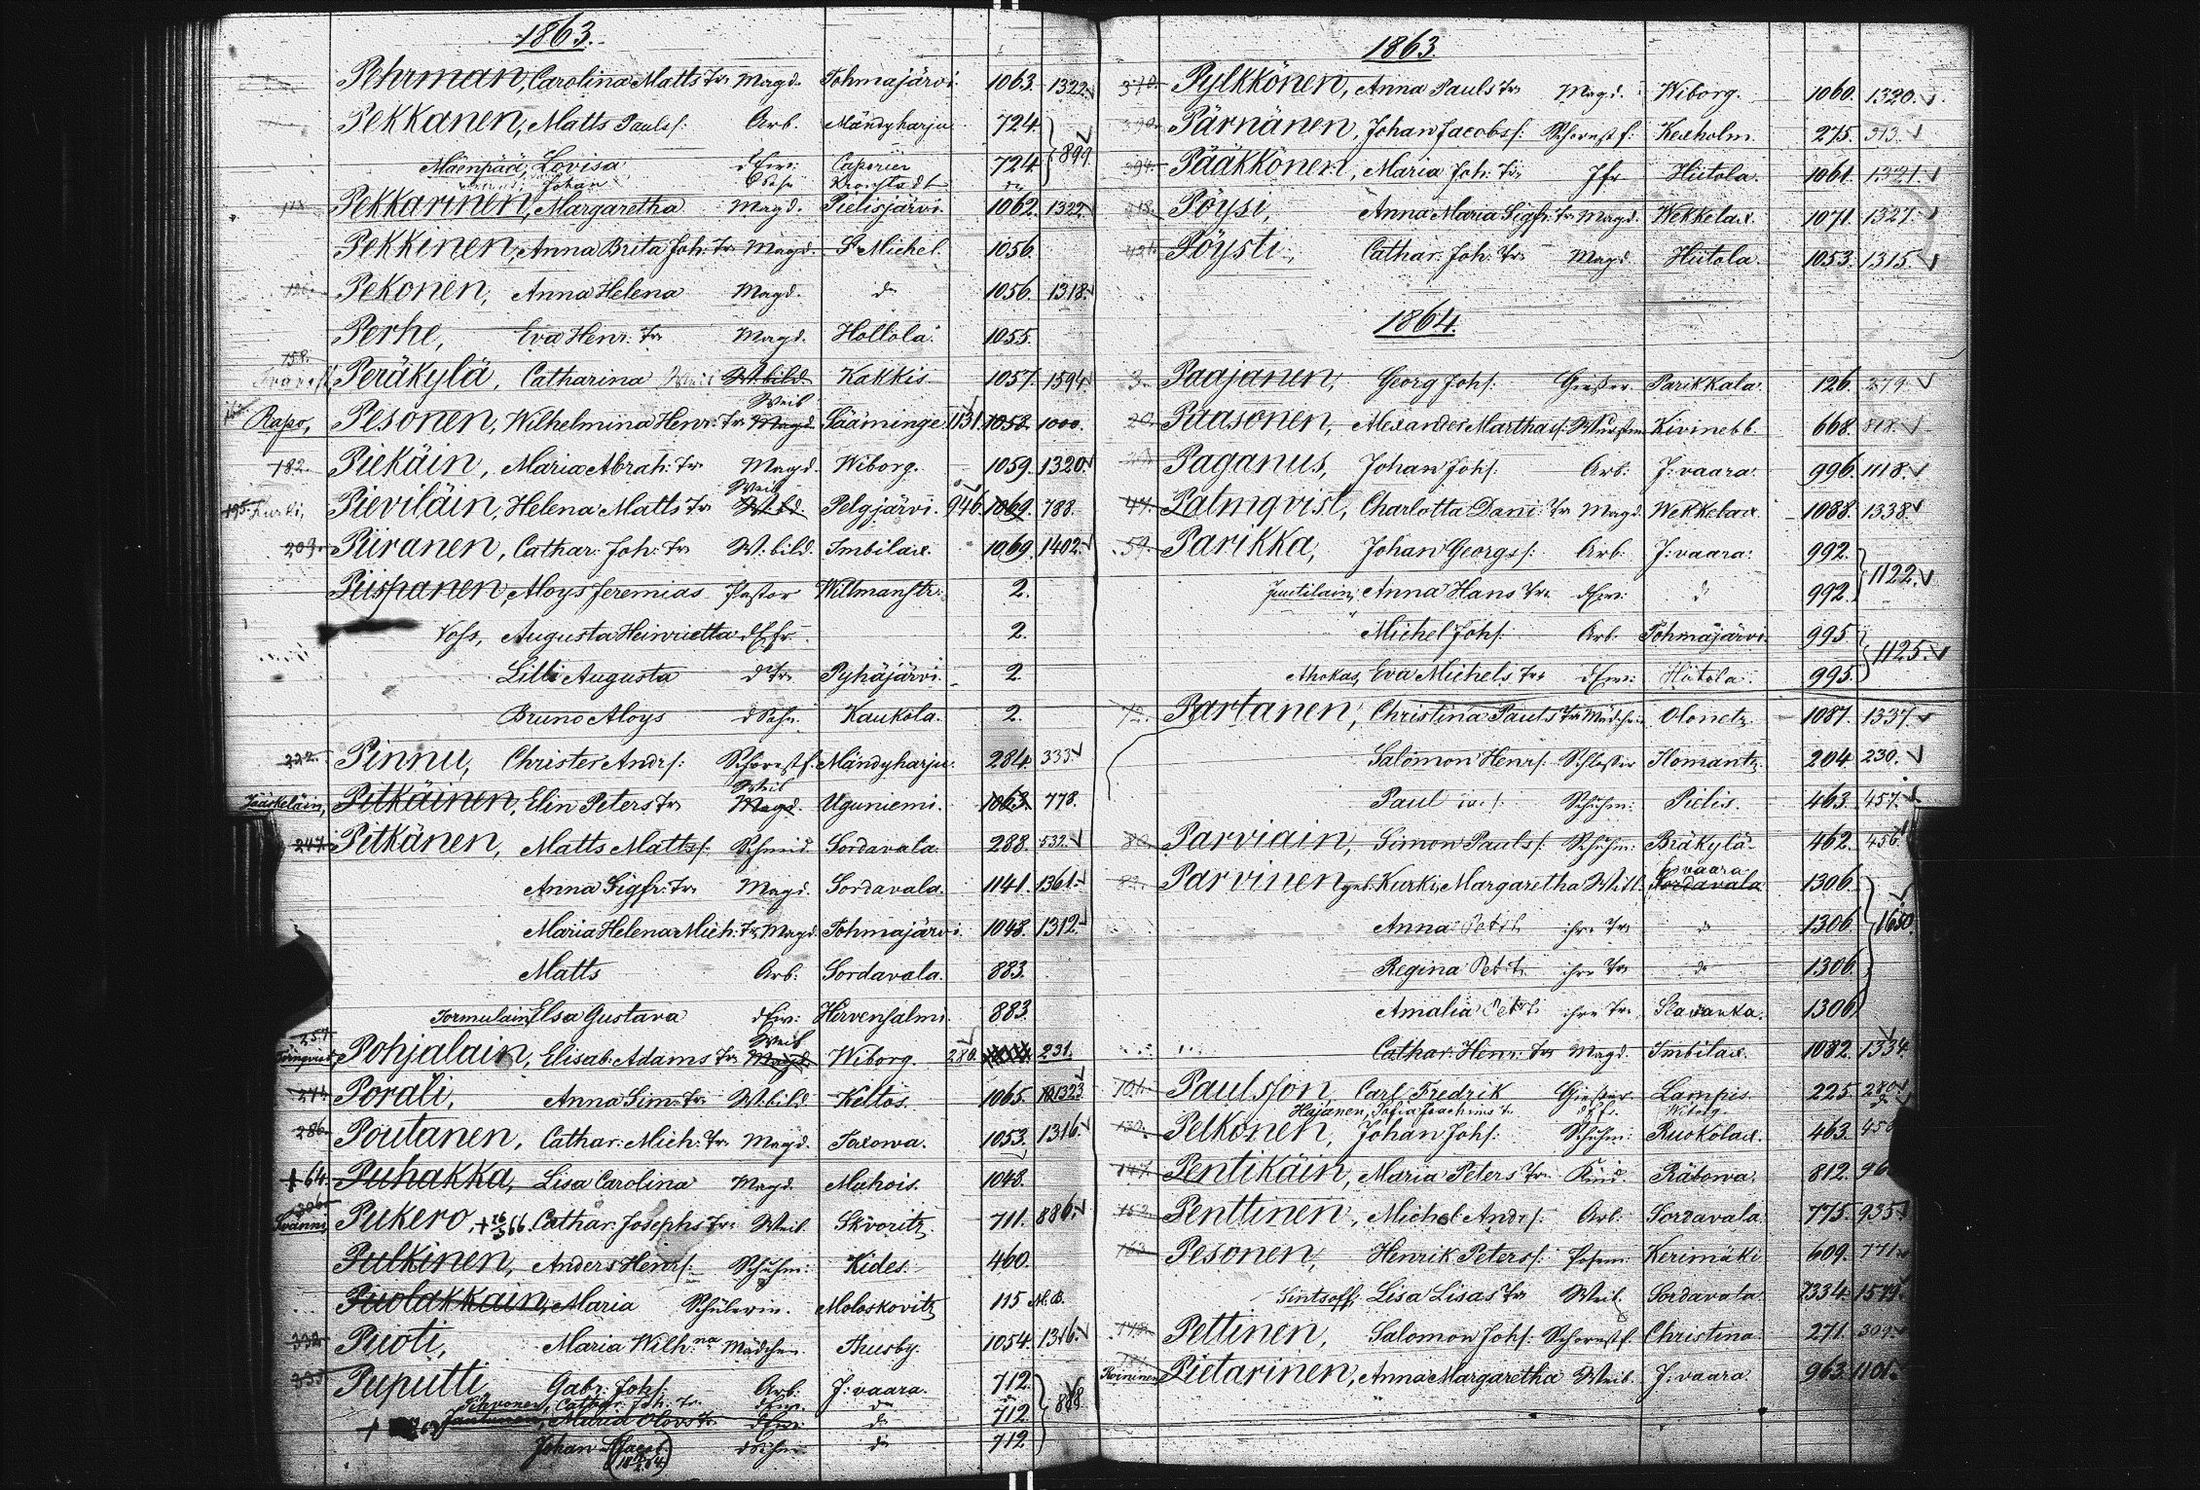 1863.
Pehrman, Carolina Matts Tr Magd. Tohmajärvi. 1063. 1322.
Pekkanen, Matts Pauls f: Arb. Mändyharju 724. 899.
Mäenpää, Lovisa dErw: Caporien 724.
Johan dSohn Kronstadt do
Pekkarinen, Margaretha Magd. Pielisjärvi. 1062. 1322.
Pekkinen, Anna Brita Joh: Tr Magd. St Michel. 1056.
Pekonen, Anna Helena Magd. do 1056. 1318.
Perhe, Eva Henr: Tr Magd. Hollola. 1055.
158. Peräkylä, Catharina Weib W.bild. Kakkis. 1057. 1594.
Rapo, Pesonen, Wilhelmina Henr: Tr Magd. Weib Sääminge 1131. 1058. 1000.
182. Piekäin, Maria Abrah: Tr Magd. Wiborg. 1059. 1320.
195. Kurki, Pieviläin, Helena Matts Tr W.bd. Weib Pelgjärvi. 946. 1069. 788.
209. Piiranen, Cathar: Joh: Tr W.bild. Imbilax. 1069. 1402.
Piispanen, Aloys Jeremias Pastor Willmanstr: 2.
Voss, Augusta Heinrietta dEfr. 2.
Lilli Augusta dTr Pyhäjärvi. 2.
Bruno Aloys dSohn Kaukola. 2.
222. Pinnu, Christer Andr f: Schornstf. Mändyharju. 284. 333.
Jääskeläin, Pitkäinen, Elin Peters Tr Magd. Weib Uguniemi. 1063. 778.
247. Pitkänen, Matts Matts f. Schmid. Sordavala. 288. 532.
Anna Sigfr: Tr Magd. Sordavala. 1141. 1361.
Maria Helena Mich: Tr Magd. Tohmajärvi. 1048. 1312.
Matts Arb: Sordavala. 883.
Tormulain, Elsa Gustava dErw: Hirvensalmi. 883.
257. Pohjalain, Elisab: Adams Tr Magd. Weib Wiborg. 280. 231.
Porali, Anna Sim: Tr W.bild Keltos. 1065. 1323.
286. Poutanen, Cathar: Mich: Tr Magd. Taxowa. 1053. 1316.
+ 64. Puhakka, Lisa Carolina Magd. Muhois. 1048.
306. Pukero, + 16/3 66 Cathar: Josephs Tr Weib. Skvoritz 711. 886.
Pulkinen, Anders Henr f: Schuhm: Kides. 460.
Puolakkain, Maria Schülerin. Moloskovitz 115 M.B.
332. Puoti, Maria Wilh:na Mädchen Thusby. 1054. 1316.
335. Puputti Gabr: Joh f: Arb: J:vaara. 712. 888.
Cathar: Joh: Tr. dErw. do 712.
+ Maria Olovs Tr dErw do
Johan dSohn do 712.

1863.
Pylkkönen, Anna Pauls Tr Magd. Wiborg. 1060. 1320.
390. Pärnänen, Johan Jacobs f: Schornstf: Kexholm. 275. 313.
394. Pääkkönen, Maria Joh: Tr Jfr Hiitola. 1061. 1321.
418. Pöysi, Anna Maria Sigfr: Tr Magd. Wekkelax. 1071. 1327.
Pöysti, Cathar: Joh: Tr Magd. Hiitola. 1053. 1315.
1864.
3. Paajanen, Georg Joh f: Giesser. Parikkala. 126. 279.
20. Paasonen, Alexander Marthas f: Kivinebb. 668. 818.
Paganus, Johan Joh f: Arb: J:vaara. 996. 1118.
47. Palmqvist, Charlotta Dani: Tr Magd. Wekkelax. 1088. 1338.
59. Parikka, Johan Georgs f: Arb: J:vaara: 992. 1122.
Juutilain, Anna Hans Tr dErw: do 992.
Michel Joh f: Arb: Tohmajärvi. 995. 1125.
Mokas, Eva Michels Tr dErw: Hiitola. 995.
72. Partanen, Christina Pauls Tr Mädchen Olonetz. 1087. 1337.
Salomon Henr f: Schlosser Ilomantz. 204. 230.
Paul Schuhm: Pielis. 463. 457.
80. Parviain, Simon Pauls f. Schuhm: Bräkylä. 462. 456.
Parvinen, geb: Kurki, Margaretha Witt. Sordavala J:vaara 1306. 1650.
Anna Petrs ihre Tr do 1306.
Regina Pet: t. ihre Tr do 1306.
Amalia Petrs ihre Tr. Slavanka. 1306.
Cathar: Henr: Tr Magd. Imbilax. 1082. 1334.
104. Paulsson, Carl Fredrik Giesser Lampis. 225. 280.
Hajanen, Sofia Joachims T. dEfr. Wiborg.
132. Pelkonen, Johan Joh f: Schuhm: Ruokolax. 463.
147. Pentikäin, Maria Peters Tr. Kind. Räbowa. 812.
152. Penttinen, Michel Andr f: Arb: Sordavala 775. 935.
163. Pesonen, Henrik Peters f: Kerimäki 609. 771.
Sintsoff, Lisa Lisas Tr Weib. Sordavala 1334.
Pettinen, Salomon Joh f: Schornstf. Christina 271. 309.
Roininen Pietarinen, Anna Margaretha Weib. J:vaara. 963. 1101.